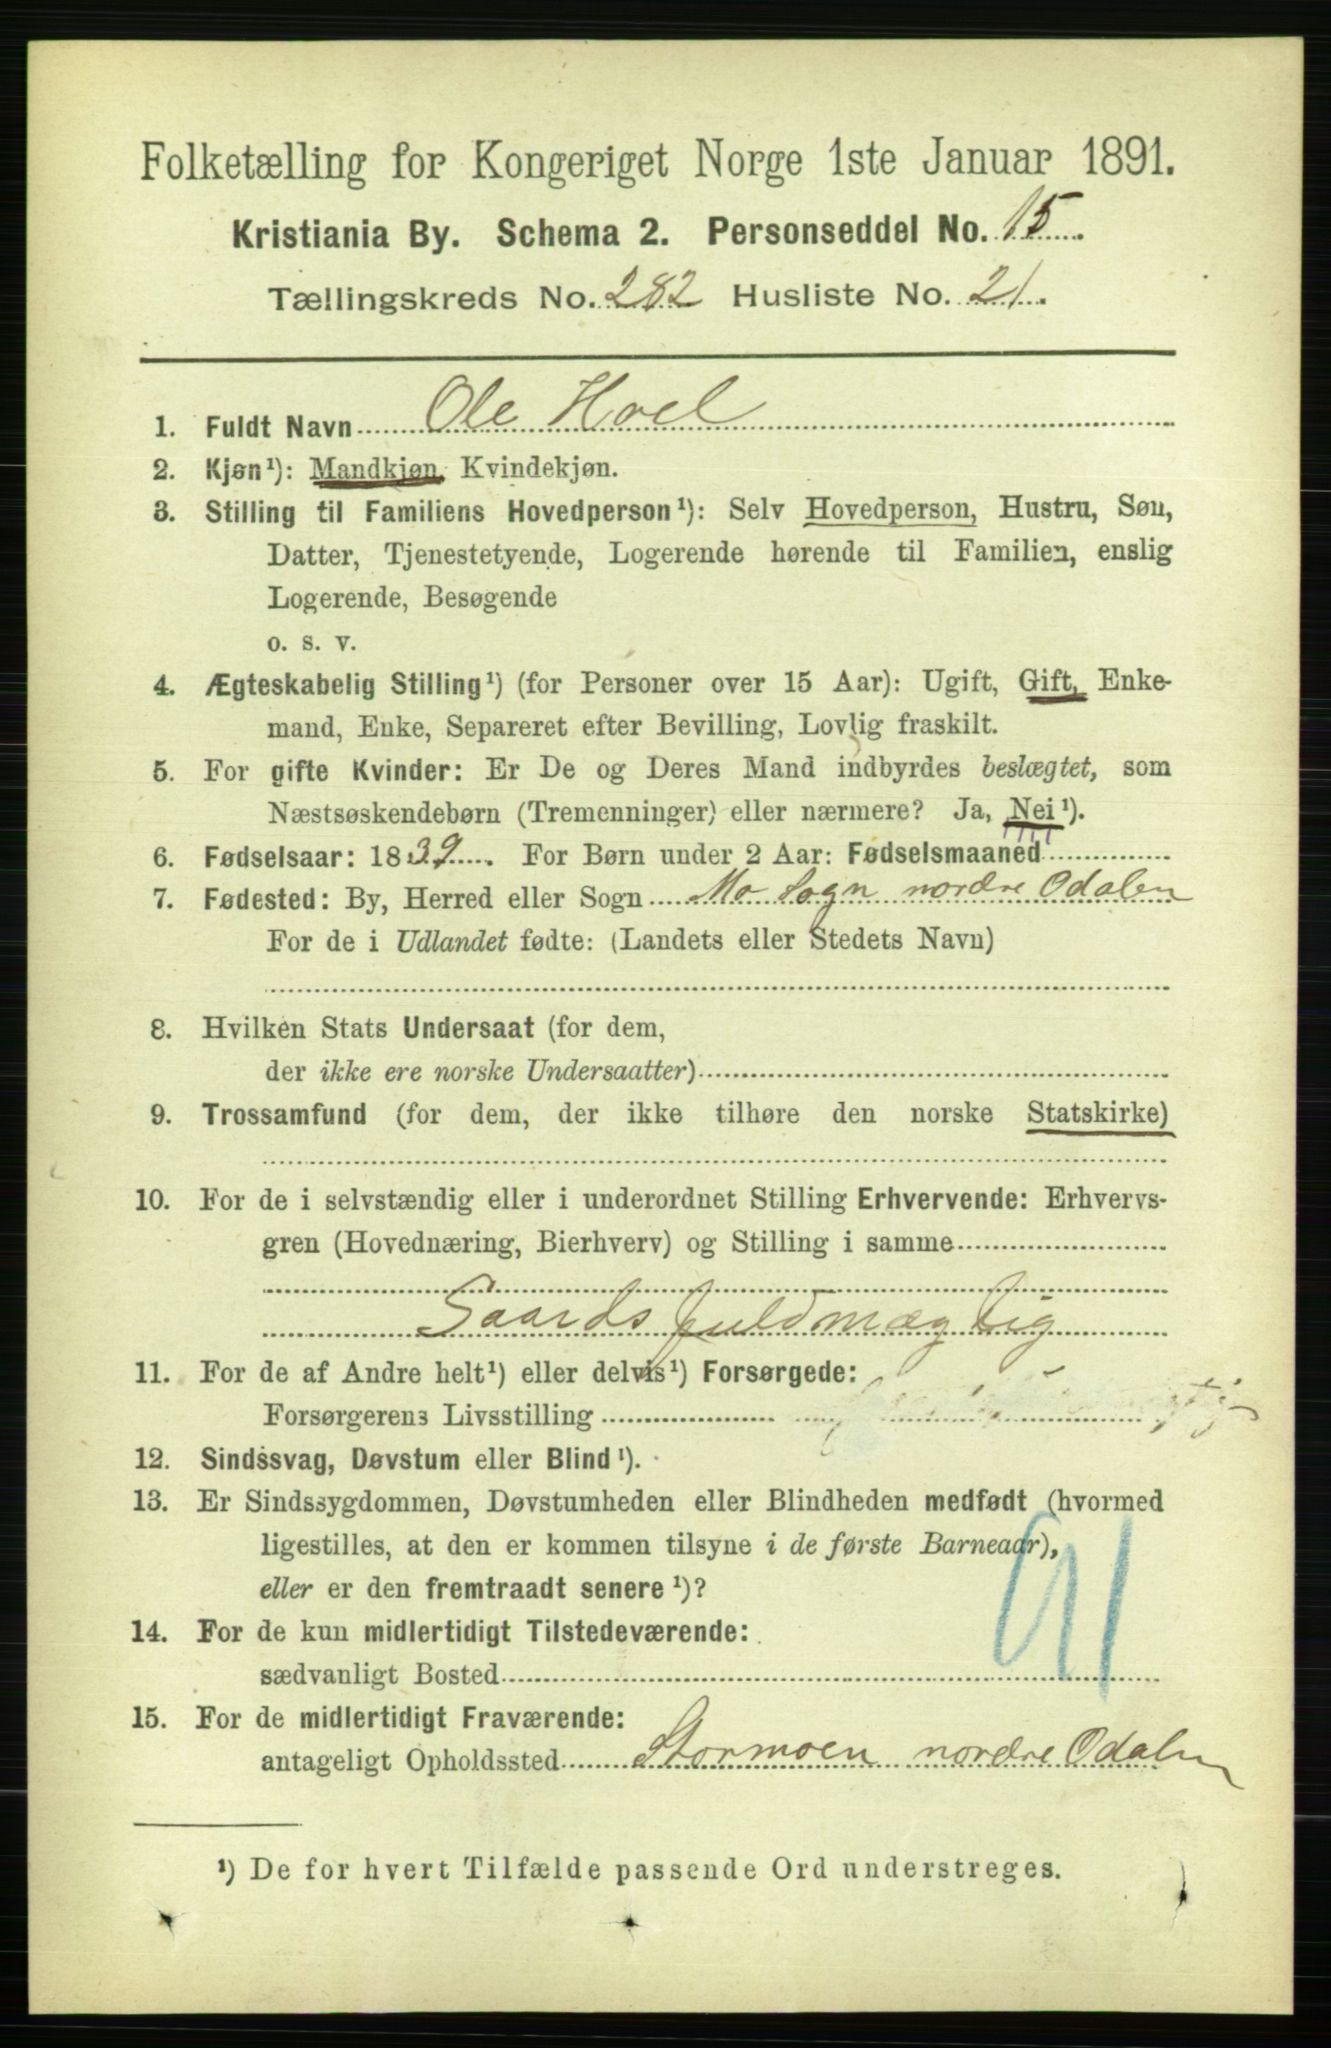 Folketælling for Kongeriget Norge 1ste Januar 1891.
Kristiania By. Schema 2. Personseddel No. 15.
Tællingskreds No. 282 Husliste No. 21.
1. Fuldt Navn Ole Hoel
2. Kjøn¹): Mandkjøn, Kvindekjøn.
3. Stilling til Familiens Hovedperson¹): Selv Hovedperson, Hustru, Søn,
Datter, Tjenestetyende, Logerende hørende til Familien, enslig
Logerende, Besøgende
o. s. v.
4. Ægteskabelig Stilling¹) (for Personer over 15 Aar): Ugift, Gift, Enke-
mand, Enke, Separeret efter Bevilling, Lovlig fraskilt.
5. For gifte Kvinder: Er De og Deres Mand indbyrdes beslægtet, som
Næstsøskendebørn (Tremenninger) eller nærmere? Ja, Nei¹).
6. Fødselsaar: 1839. For Børn under 2 Aar: Fødselsmaaned
7. Fødested: By, Herred eller Sogn Mo Sogn nordre Odalen
For de i Udlandet fødte: (Landets eller Stedets Navn)
8. Hvilken Stats Undersaat (for dem,
der ikke ere norske Undersaatter)
9. Trossamfund (for dem, der ikke tilhøre den norske Statskirke)
10. For de i selvstændig eller i underordnet Stilling Erhvervende: Erhvervs-
gren (Hovednæring, Bierhverv) og Stilling i samme
Gaardsfuldmægtig
11. For de af Andre helt¹) eller delvis¹) Forsørgede:
Forsørgerens Livsstilling
12. Sindssvag, Døvstum eller Blind¹).
13. Er Sindssygdommen, Døvstumheden eller Blindheden medfødt (hvormed
ligestilles, at den er kommen tilsyne i de første Barneaar),
eller er den fremtraadt senere¹)?
91
14. For de kun midlertidigt Tilstedeværende:
sædvanligt Bosted
15. For de midlertidigt Fraværende:
antageligt Opholdssted Stormoen nordre Odalen
¹) De for hvert Tilfælde passende Ord understreges.